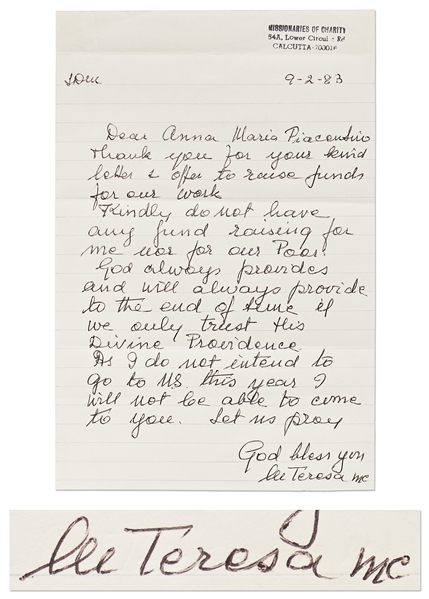 MISSIONARIES OF CHARITY
54A, Lower Circul - Rd
CALCUTTA-700016
LDM 9-2-83
Dear Anna Maria Piacentino
Thank you for your kind
letter & offer to raise funds
for our work
Kindly do not have
any fund raising for
me nor for our Poor.
God always provides
and will always provide
to the end of time if
we only trust His
Divine Providence
As I do not intend to
go to US. this year I
will not be able to come
to you. Let us pray
God bless you
lle Teresa mc
lle Teresa mc